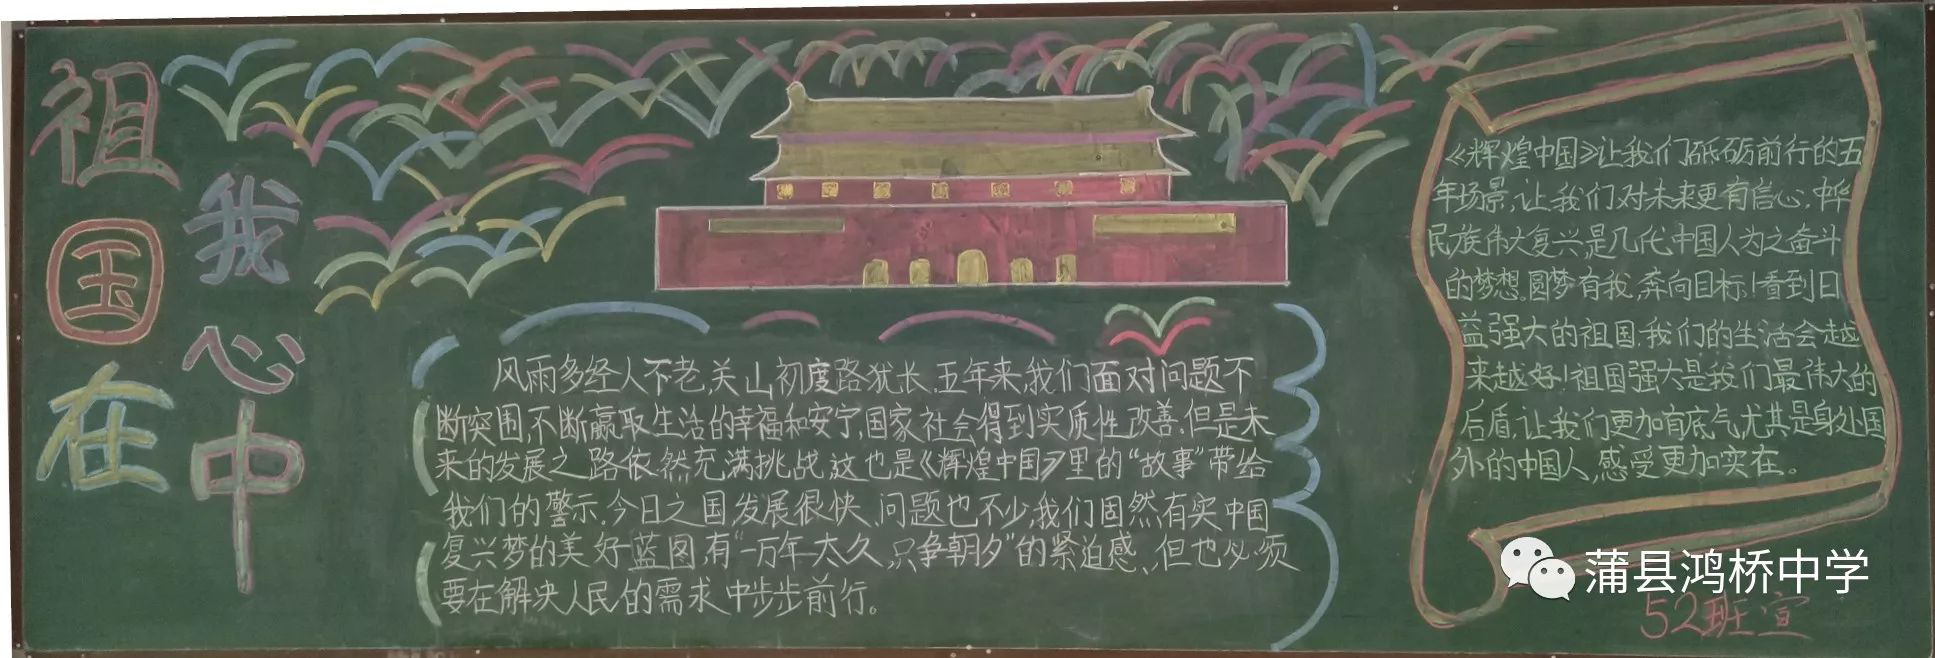 祖国在
我心中
风雨多经人不老,关山初度路犹长.五年来,我们面对问题不
断突围,不断赢取生活的幸福和安宁,国家社会得到实质性改善.但是未
来的发展之路依然充满挑战,这也是《辉煌中国》里的“故事”带给
我们的警示.今日之国发展很快、问题也不少,我们固然有实中国
复兴梦的美好蓝图,有“一万年太久,只争朝夕”的紧迫感、但也必须
要在解决人民的需求中步步前行。
《辉煌中国》让我们砥砺前行的五
年场景,让我们对未来更有信心,中华
民族伟大复兴,是几代中国人为之奋斗
的梦想。圆梦有我,奔向目标!看到日
益强大的祖国,我们的生活会越
来越好!祖国强大是我们最伟大的
后盾,让我们更加有底气,尤其是身处国
外的中国人,感受更加实在。
52班宣
蒲县鸿桥中学